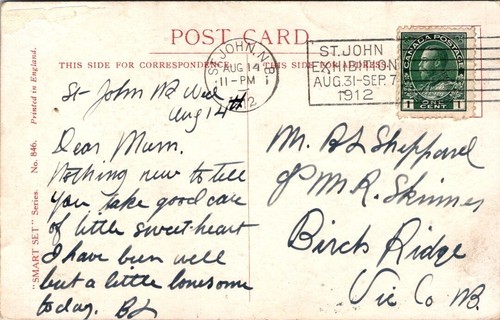 POST CARD.
THIS SIDE FOR CORRESPONDENCE.
THIS SIDE FOR ADDRESS.
ST. JOHN, N.B.
AUG 14
11-PM
1912
ST. JOHN
EXHIBITION
AUG. 31-SEP. 7
1912
CANADA POSTAGE
1 ONE CENT 1
Printed in England.
No. 846.
"SMART SET" Series.
St John NB Wed
Aug 14th
Dear Mum.
Nothing new to tell
you take good care
of little sweet-heart
I have been well
but a little lonesome
today. BL
Mr. BL Sheppard
c/o Mr R. Skinner
Birch Ridge
Vic Co NB.